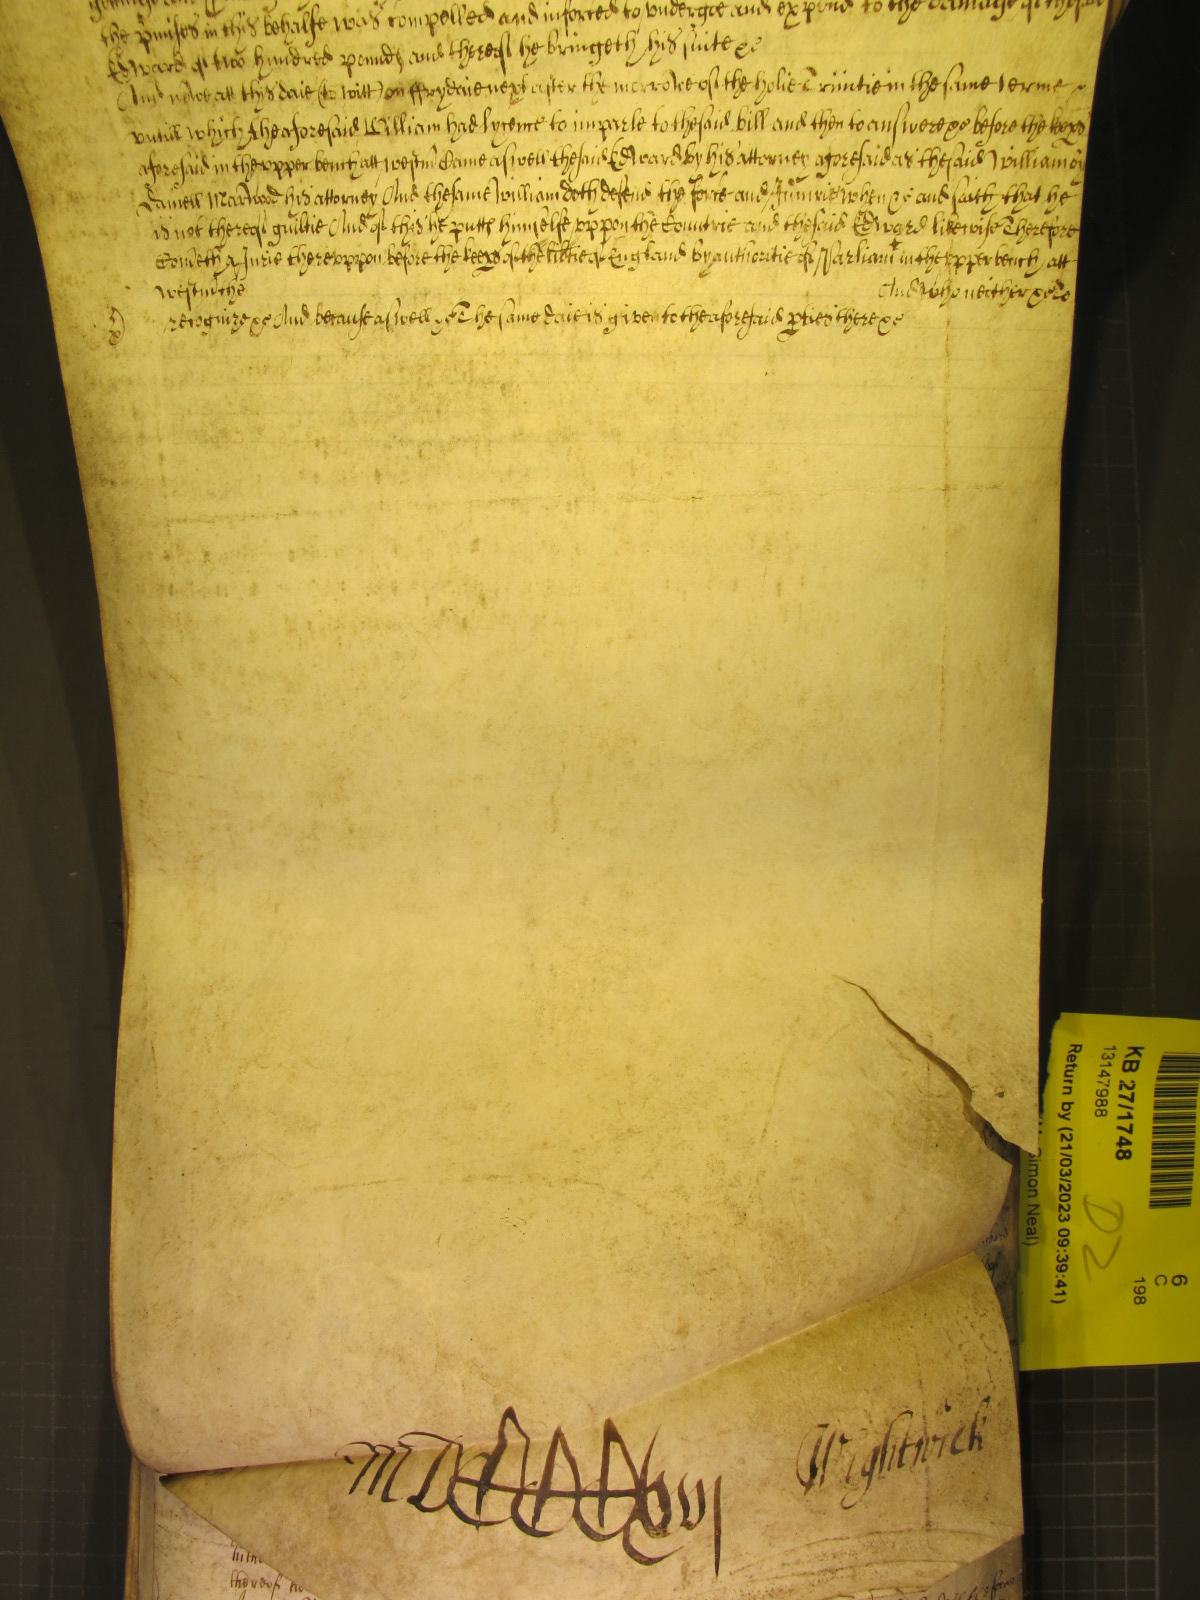 the pmises in this behalfe was compelled and inforced to undergoe and expend to the damage of the said
Edward of two hundred pounds and thereof he bringeth his suite &c
And now att this daie (to witt) on ffrydaie next after the morrowe of the holie Trinitie in the same Terme
untill which the aforesaid William had lycence to imparle to the said bill and then to answere &c before the keeps
aforesaid in the upper bench att westm Came aswell the said Edward by his attorney aforesaid as the said William by
Daniell Marwood his attorney And the same William doth defend the force and Iniurie when &c and saith that he
is not thereof guiltie And of this he putts himselfe uppon the Countrie and the said Edward likewise Therefore
Cometh a Iurie thereuppon before the keeps of the libtie of England by authoritie of Parliamt in the upper bench att
westm the And who neither &c to
recognize &c And because aswell &c The same daie is given to the aforesaid pties there &c
Wightwick
KB 27/1748
13147988
Return by (21/03/2023 09:39:41)
Simon Neal)
D2
6
C
198